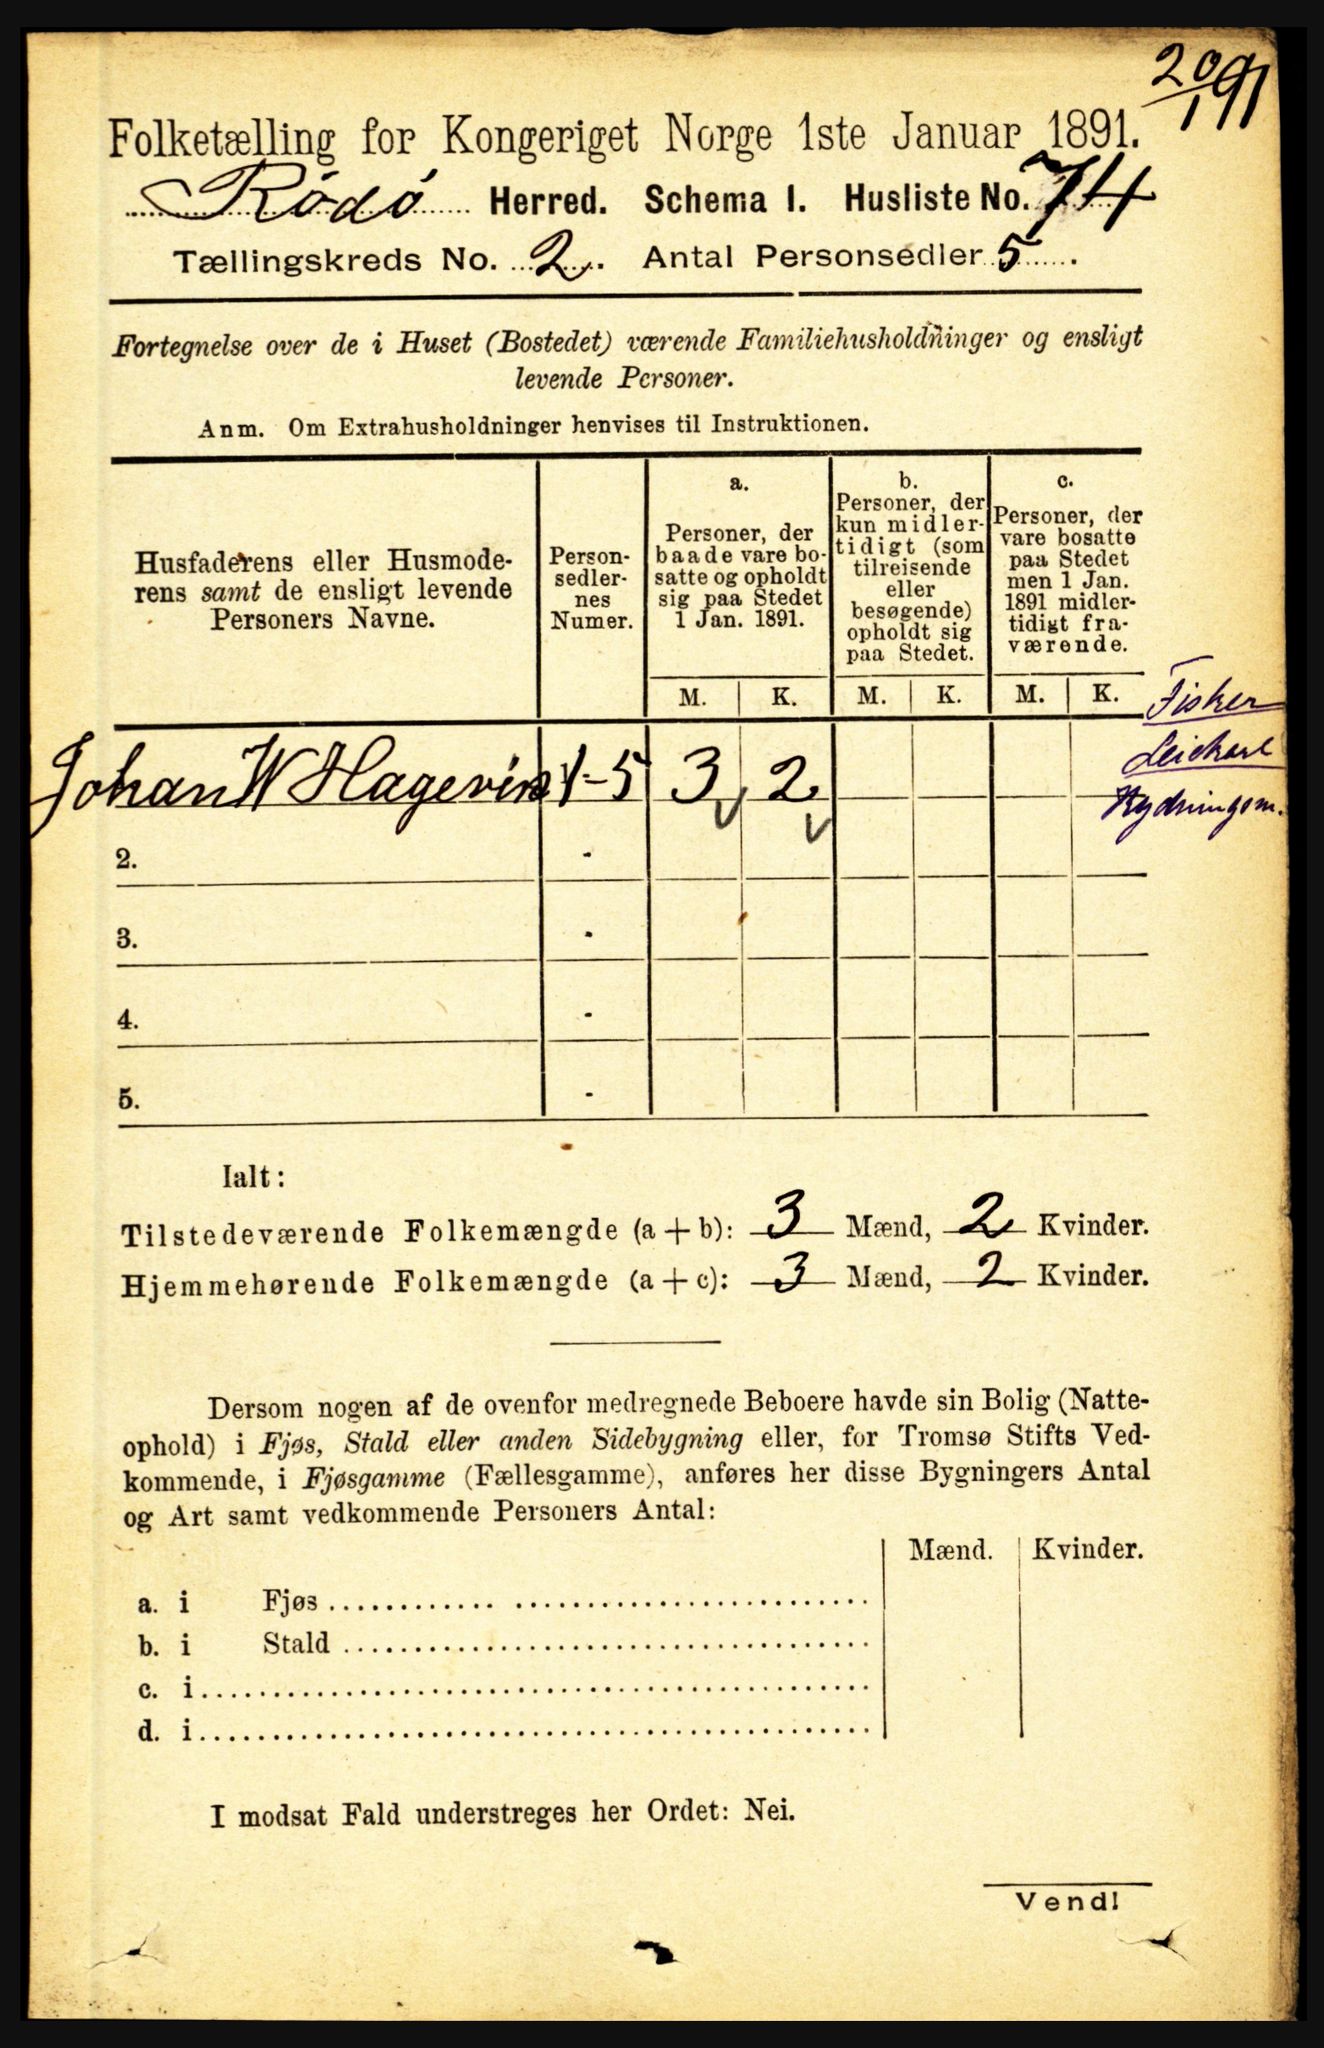 20/1 91
Folketælling for Kongeriget Norge 1ste Januar 1891.
Rödö Herred. Schema I. Husliste No. 74
Tællingskreds No. 2. Antal Personsedler 5.
Fortegnelse over de i Huset (Bostedet) værende Familiehusholdninger og ensligt
levende Personer.
Anm. Om Extrahusholdninger henvises til Instruktionen.
Husfaderens eller Husmode-
rens samt de ensligt levende
Personers Navne.
Person-
sedler-
nes
Numer.
a.
Personer, der
baade vare bo-
satte og opholdt
sig paa Stedet
1 Jan. 1891.
b.
Personer, der
kun midler-
tidigt (som
tilreisende
eller
besøgende)
opholdt sig
paa Stedet.
c.
Personer, der
vare bosatte
paa Stedet
men 1 Jan.
1891 midler-
tidigt fra-
værende.
M. K. M. K. M. K.
Fisker
Leiekarl
Rydningsm.
Johan W Hagevik 1-5 3 2
2. -
3. -
4. -
5. -
Ialt:
Tilstedeværende Folkemængde (a + b): 3 Mænd, 2 Kvinder.
Hjemmehørende Folkemængde (a + c): 3 Mænd, 2 Kvinder.
Dersom nogen af de ovenfor medregnede Beboere havde sin Bolig (Natte-
ophold) i Fjøs, Stald eller anden Sidebygning eller, for Tromsø Stifts Ved-
kommende, i Fjøsgamme (Fællesgamme), anføres her disse Bygningers Antal
og Art samt vedkommende Personers Antal:
Mænd. Kvinder.
a. i Fjøs
b. i Stald
c. i
d. i
I modsat Fald understreges her Ordet: Nei.
Vend!